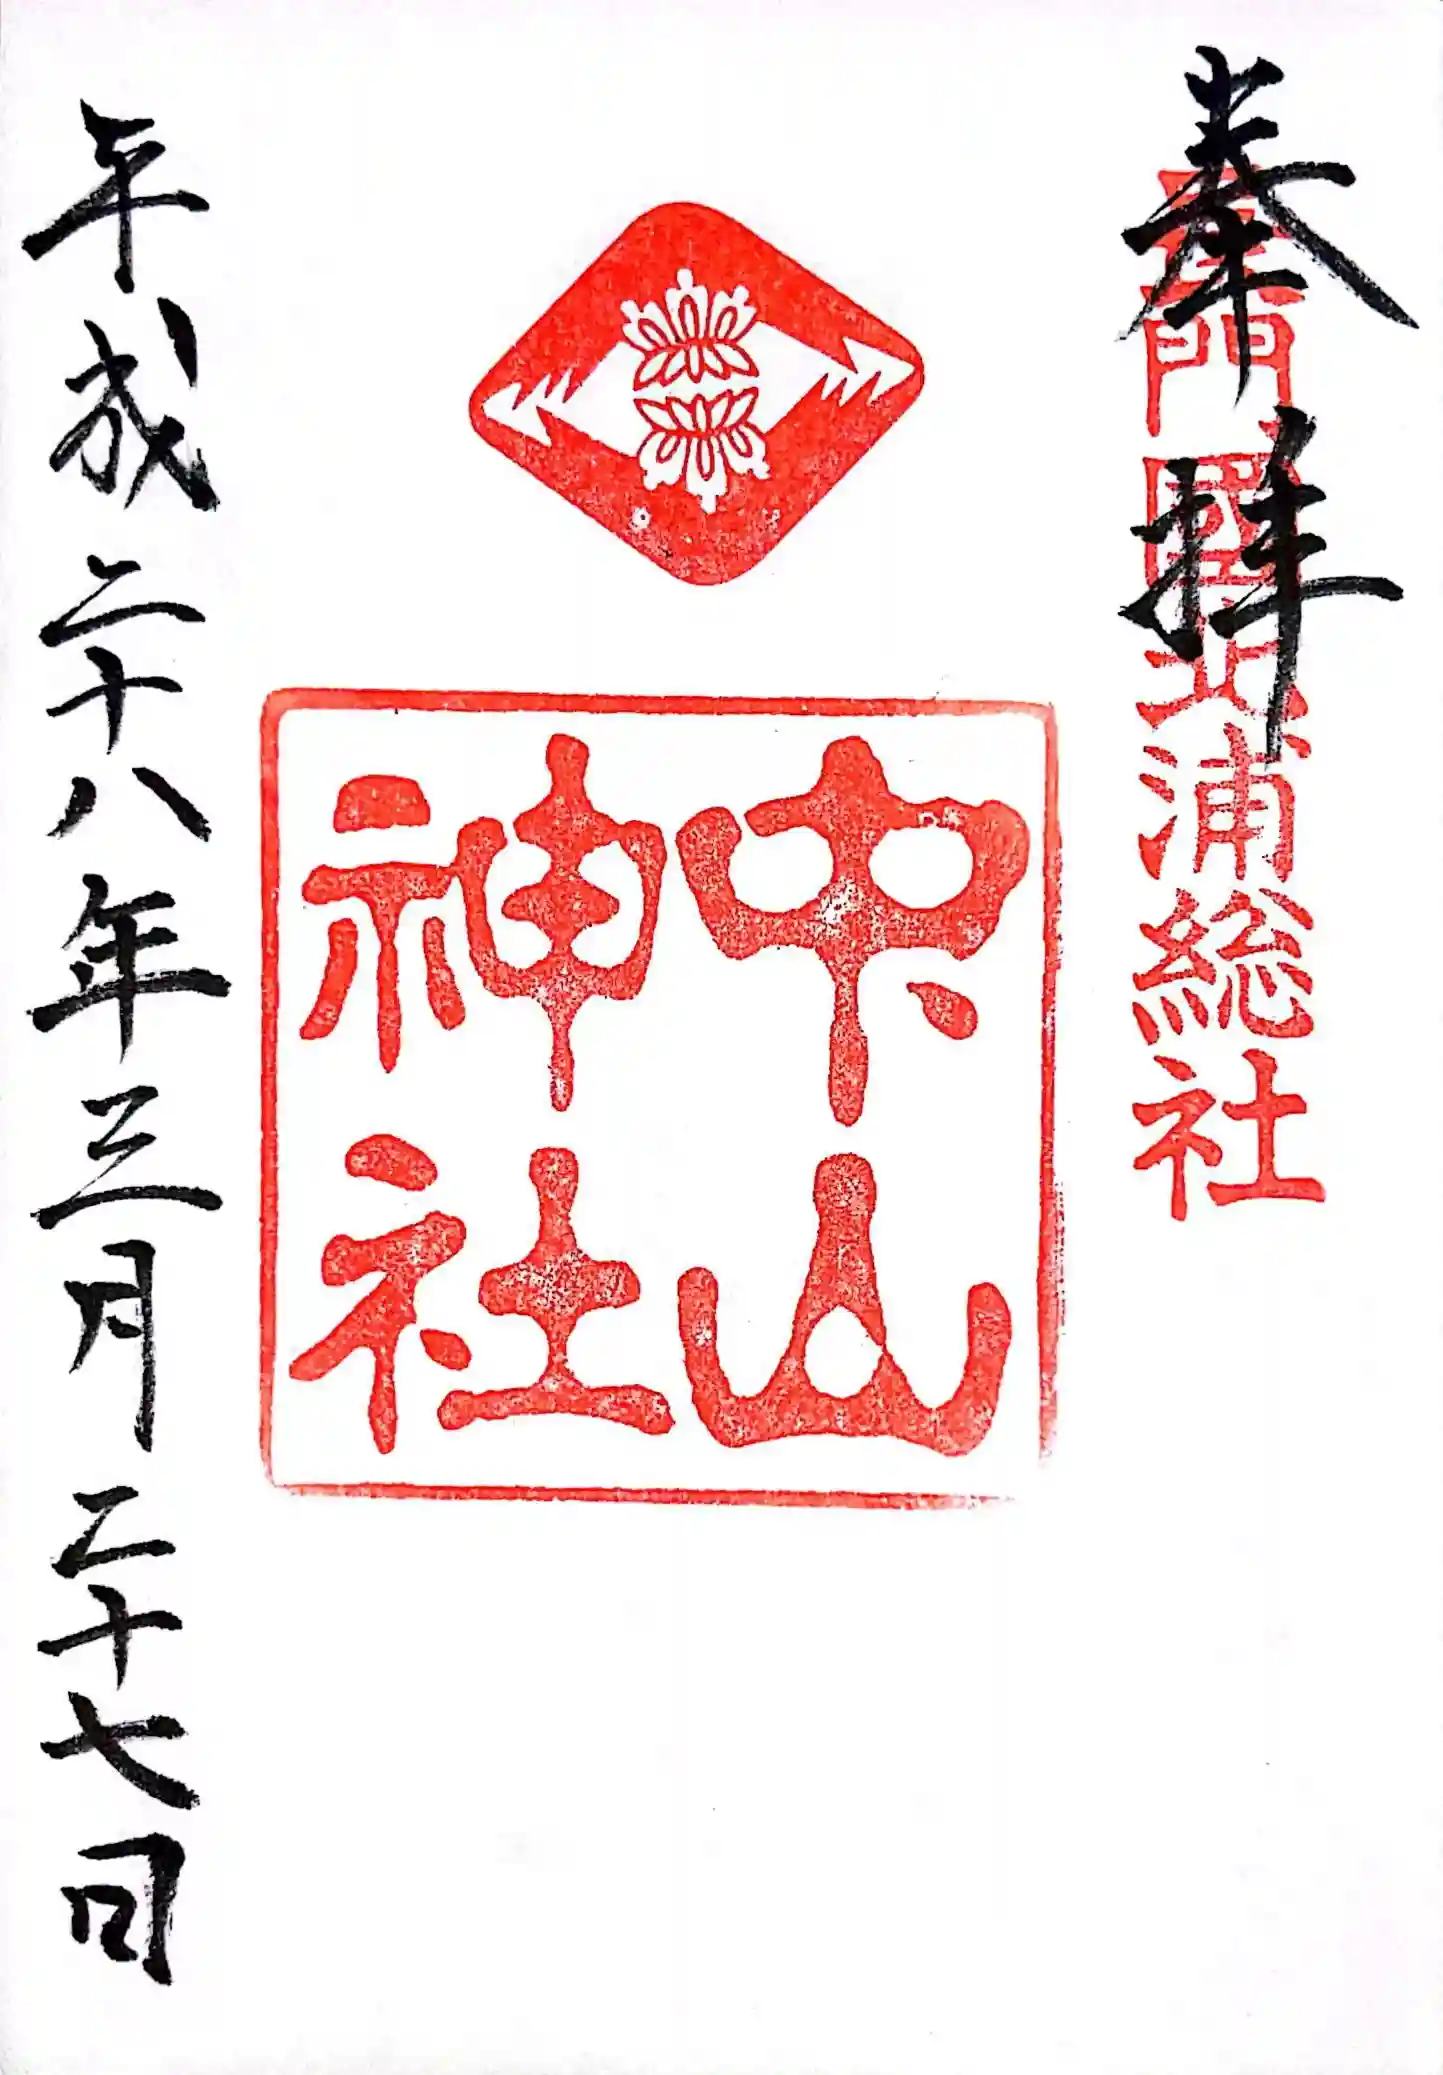 奉拝
長門國北浦総社
中山神社
平成二十八年三月二十七日